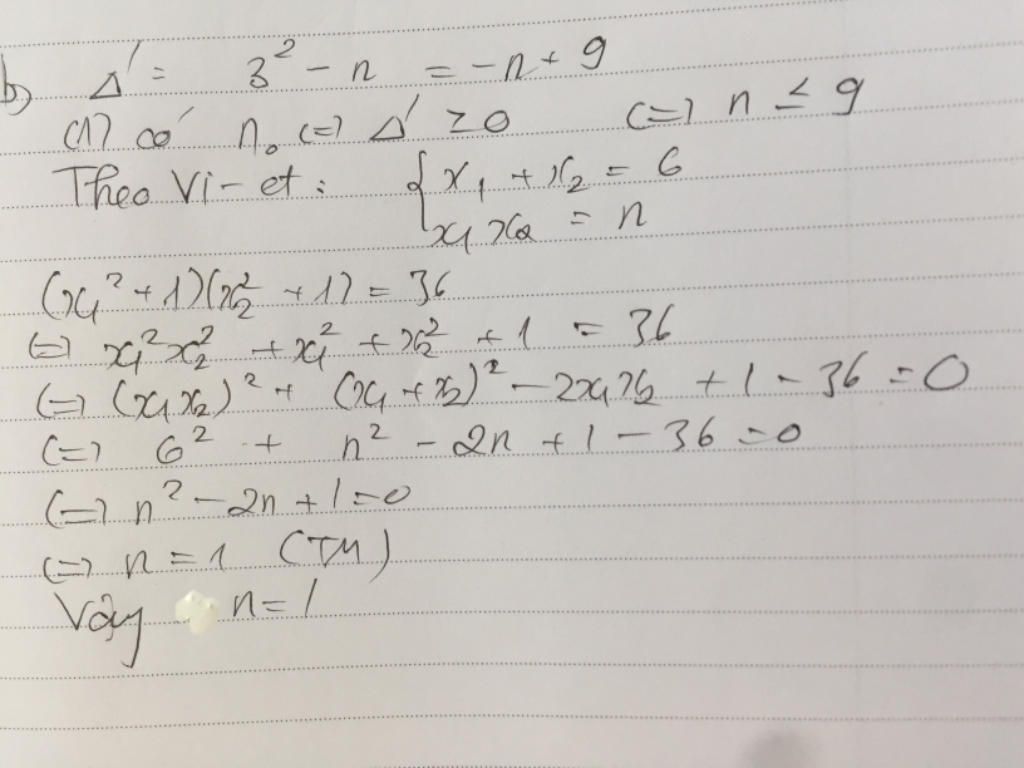 b) Δ' = 3² - n = -n + 9
(1) có n₀ (=) Δ' ≥ 0 (=) n ≤ 9
Theo Vi-et : { x₁ + x₂ = 6
x₁x₂ = n
(x₁² + 1)(x₂² + 1) = 36
(=) x₁²x₂² + x₁² + x₂² + 1 = 36
(=) (x₁x₂)² + (x₁ + x₂)² - 2x₁x₂ + 1 - 36 = 0
(=) 6² + n² - 2n + 1 - 36 = 0
(=) n² - 2n + 1 = 0
(=) n = 1 (TM)
Vậy n = 1